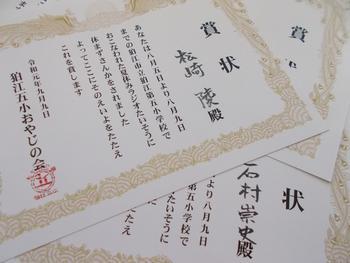 賞状
松崎 陵殿
あなたは八月五日より八月九日
までの狛江市立狛江第五小学校で
おこなわれた夏休みラジオたいそうに
休まずさんかをされました
よってここにそのえいよをたたえ
これを賞します
令和元年九月九日
狛江五小おやじの会
賞状
石村崇史殿
より八月九日
第五小学校で
たいそうに
賞